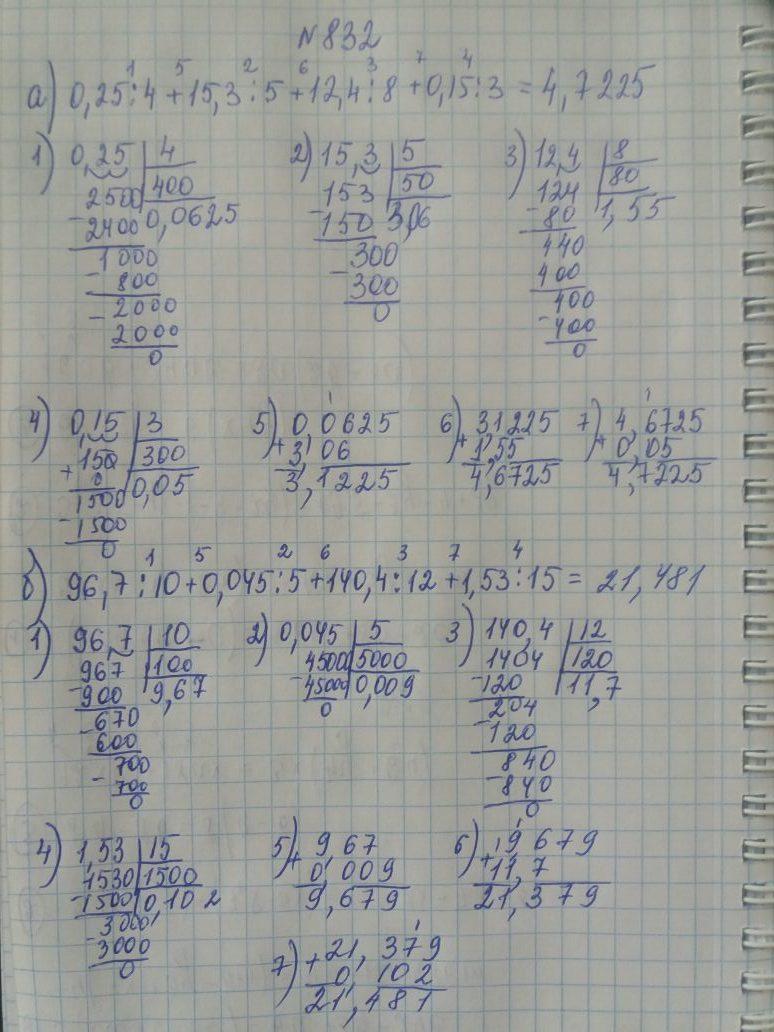 №832
а) 0,25:4+15,3:5+12,4:8+0,15:3=4,7225
1 5 2 6 3 7 4
1) 0,25 | 4
2500 | 400
-2400 0,0625
1000
-800
-2000
2000
0
2) 15,3 | 5
153 | 50
-150 3,06
300
-300
0
3) 12,4 | 8
124 | 80
-80 1,55
440
400
400
-400
0
4) 0,15 | 3
+150 | 300
0 0,05
1500
-1500
0
5) 0,0625
+3,06
3,1225
6) 3,1225
+1,55
4,6725
7) 4,6725
+0,05
4,7225
б) 96,7:10+0,045:5+140,4:12+1,53:15=21,481
1 5 2 6 3 7 4
1) 96,7 | 10
967 | 100
-900 9,67
670
-600
700
-700
0
2) 0,045 | 5
4500 | 5000
-45000 0,009
0
3) 140,4 | 12
1404 | 120
-120 11,7
204
-120
840
-840
0
4) 1,53 | 15
1530 | 1500
-1500 0,102
3000
-3000
0
5) 9,67
+0,009
9,679
6) 9,679
+11,7
21,379
7) +21,379
0,102
21,481